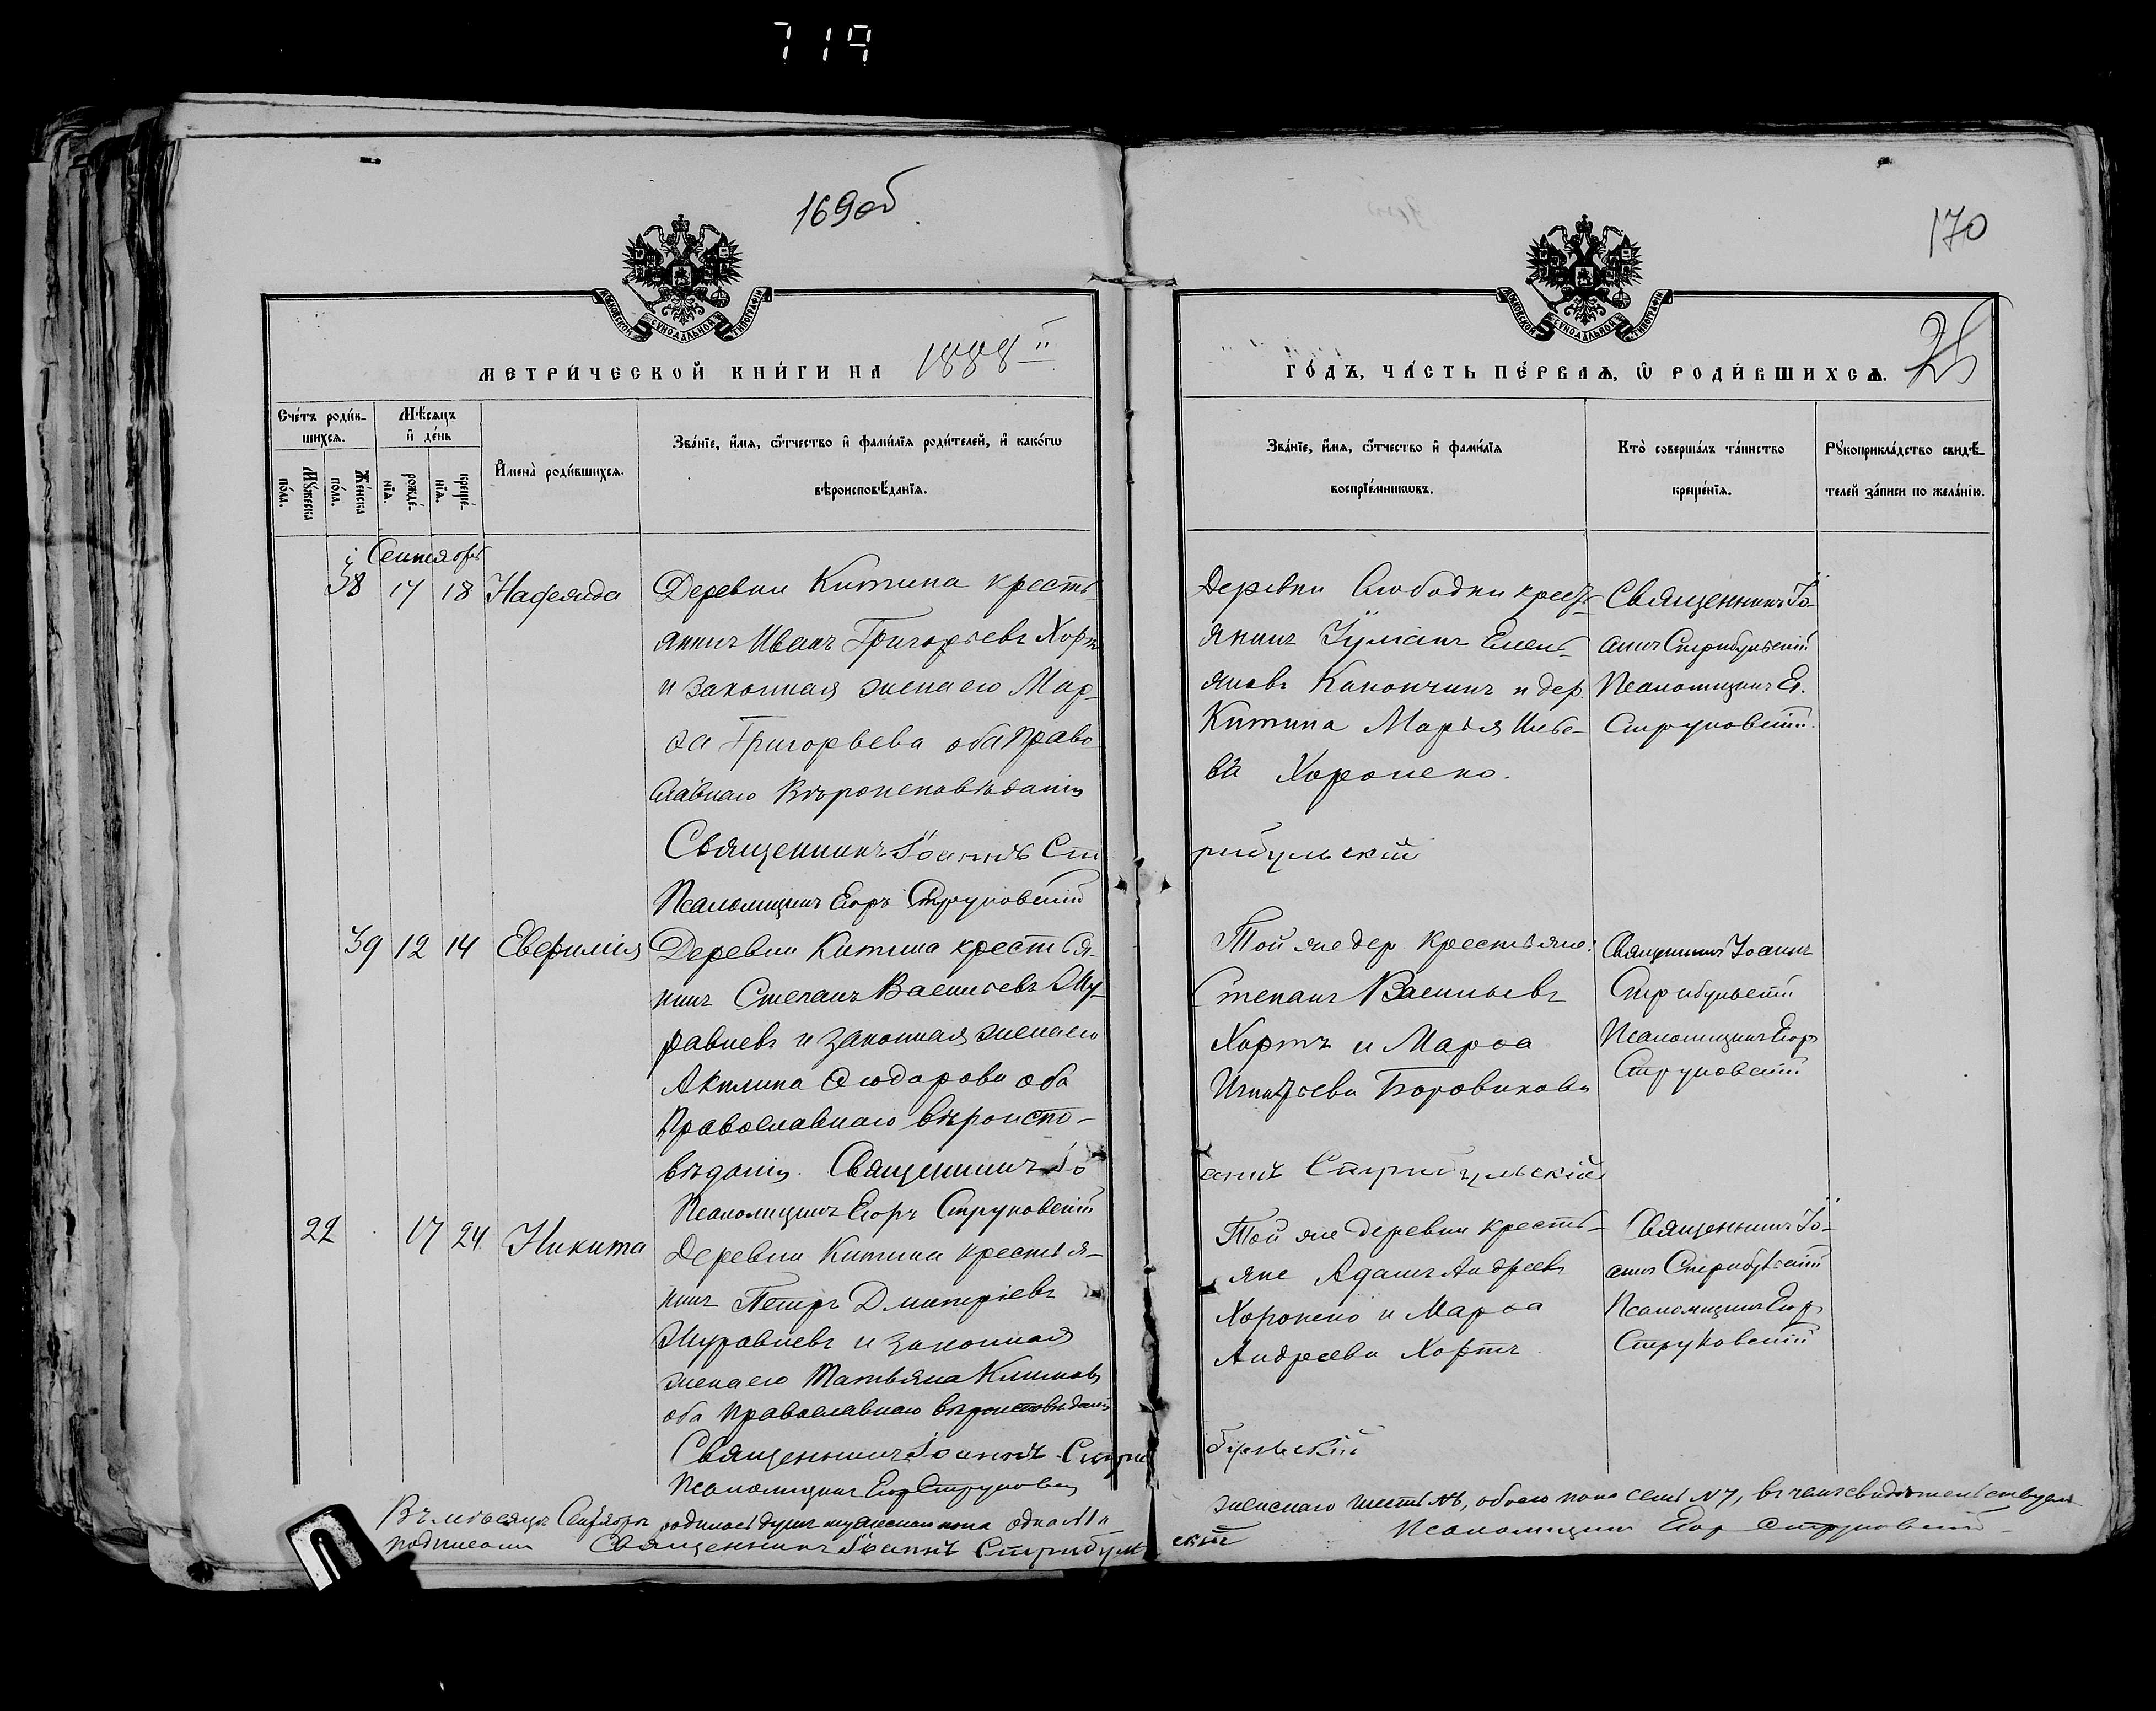 719
169об
170
МОСКОВСКОЙ СѴНОДАЛЬНОЙ ТИПОГРАФІИ
МОСКОВСКОЙ СѴНОДАЛЬНОЙ ТИПОГРАФІИ
МЕТРИ́ЧЕСКОЙ КНИ́ГИ НА 1888
ГО́ДЪ, ЧА́СТЬ ПЕ́РВАѦ, Ѡ РОДИ́ВШИХСѦ.
Сче́тъ роди́в-
шихсѧ.
Мꙋ́жеска
по́ла.
Же́нска
по́ла.
Мѣ́сѧцъ
и҆ де́нь
рожде́-
нїѧ.
креще́-
нїѧ.
И҆мена̀ роди́вшихсѧ.
Зва́нїе, и҆́мѧ, ѻ҆́тчество и҆ фами́лїѧ роди́телей, и҆ како́гѡ
вѣроисповѣ́данїѧ.
Зва́нїе, и҆́мѧ, ѻ҆́тчество и҆ фами́лїѧ
воспрїе́мникѡвъ.
Кто̀ соверша́лъ та́инство
креще́нїѧ.
Рꙋкоприкла́дство свидѣ́-
телей за́писи по жела́нїю.
Сентябрь
38 17 18
Деревни Китина кресть-
янинъ Иванъ Григорьевъ Хортъ
и законная жена его Мар-
ѳа Григорьева оба право-
славнаго вѣроисповѣданія
Священникъ Іоаннъ Ст
рибульскій
Псаломщикъ Егоръ Струковскій
Деревни Слободки крест-
янинъ Іуліанъ Емель-
яновъ Канончикъ и дер.
Китина Марья
ва Хоронеко.
Священникъ Іо-
аннъ Стрибульскій
Псаломщикъ Ег.
Струковскій.
39 12 14 Евфимія
Деревни Китина крестья-
нинъ Степанъ Васильевъ Жу-
равлевъ и законная жена его
Акилина Ѳеодорова оба
Православнаго вѣроиспо-
вѣданія. Священникъ Іо
аннъ Стрибульскій
Псаломщикъ Егоръ Струковскій
Той же дер. крестьяне:
Степанъ Васильевъ
Хортъ и Марѳа
Игнатьева Боровикова
Священникъ Іоаннъ
Стрибульскій
Псаломщикъ Егоръ
Струковскій
22 17 24 Никита
Деревни Китина крестья-
нинъ Петръ Дмитріевъ
Журавлевъ и законная
жена его Татьяна Климова
оба православнаго вѣроисповѣданія
Священникъ Іоаннъ Стри
бульскій
Псаломщикъ Егоръ Струковскій
Той же деревни кресть-
яне Адамъ Андреевъ
Хоронеко и Марѳа
Андреева Хортъ
Священникъ Іо-
аннъ Стрибульскій
Псаломщикъ Егоръ
Струковскій
Въ мѣсяцѣ Сентябрѣ родилось душъ мужескаго пола одна №1 и
женскаго шесть №6, обоего пола семь №7, въ чемъ свидѣтельствуемъ
подписомъ Священникъ Іоаннъ Стрибуль
скій
Псаломщикъ Егоръ Струковскій